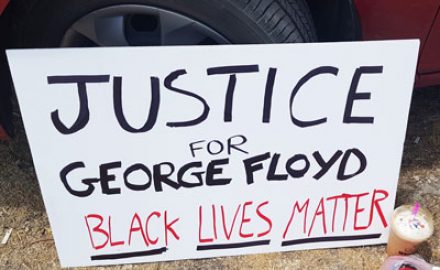 JUSTICE
FOR
GEORGE FLOYD
BLACK LIVES MATTER